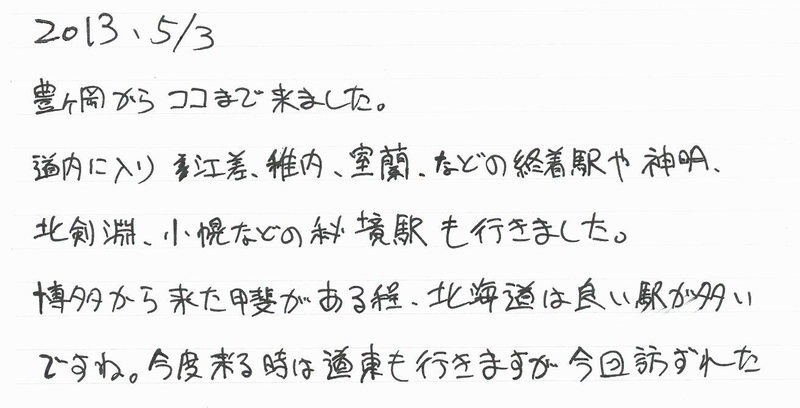 2013、5/3
豊ヶ岡からココまで来ました。
道内に入り江差、稚内、室蘭、などの終着駅や神明、
北剣淵、小幌などの秘境駅も行きました。
博多から来た甲斐がある程、北海道は良い駅が多い
ですね。今度来る時は道東も行きますが今回訪ずれた